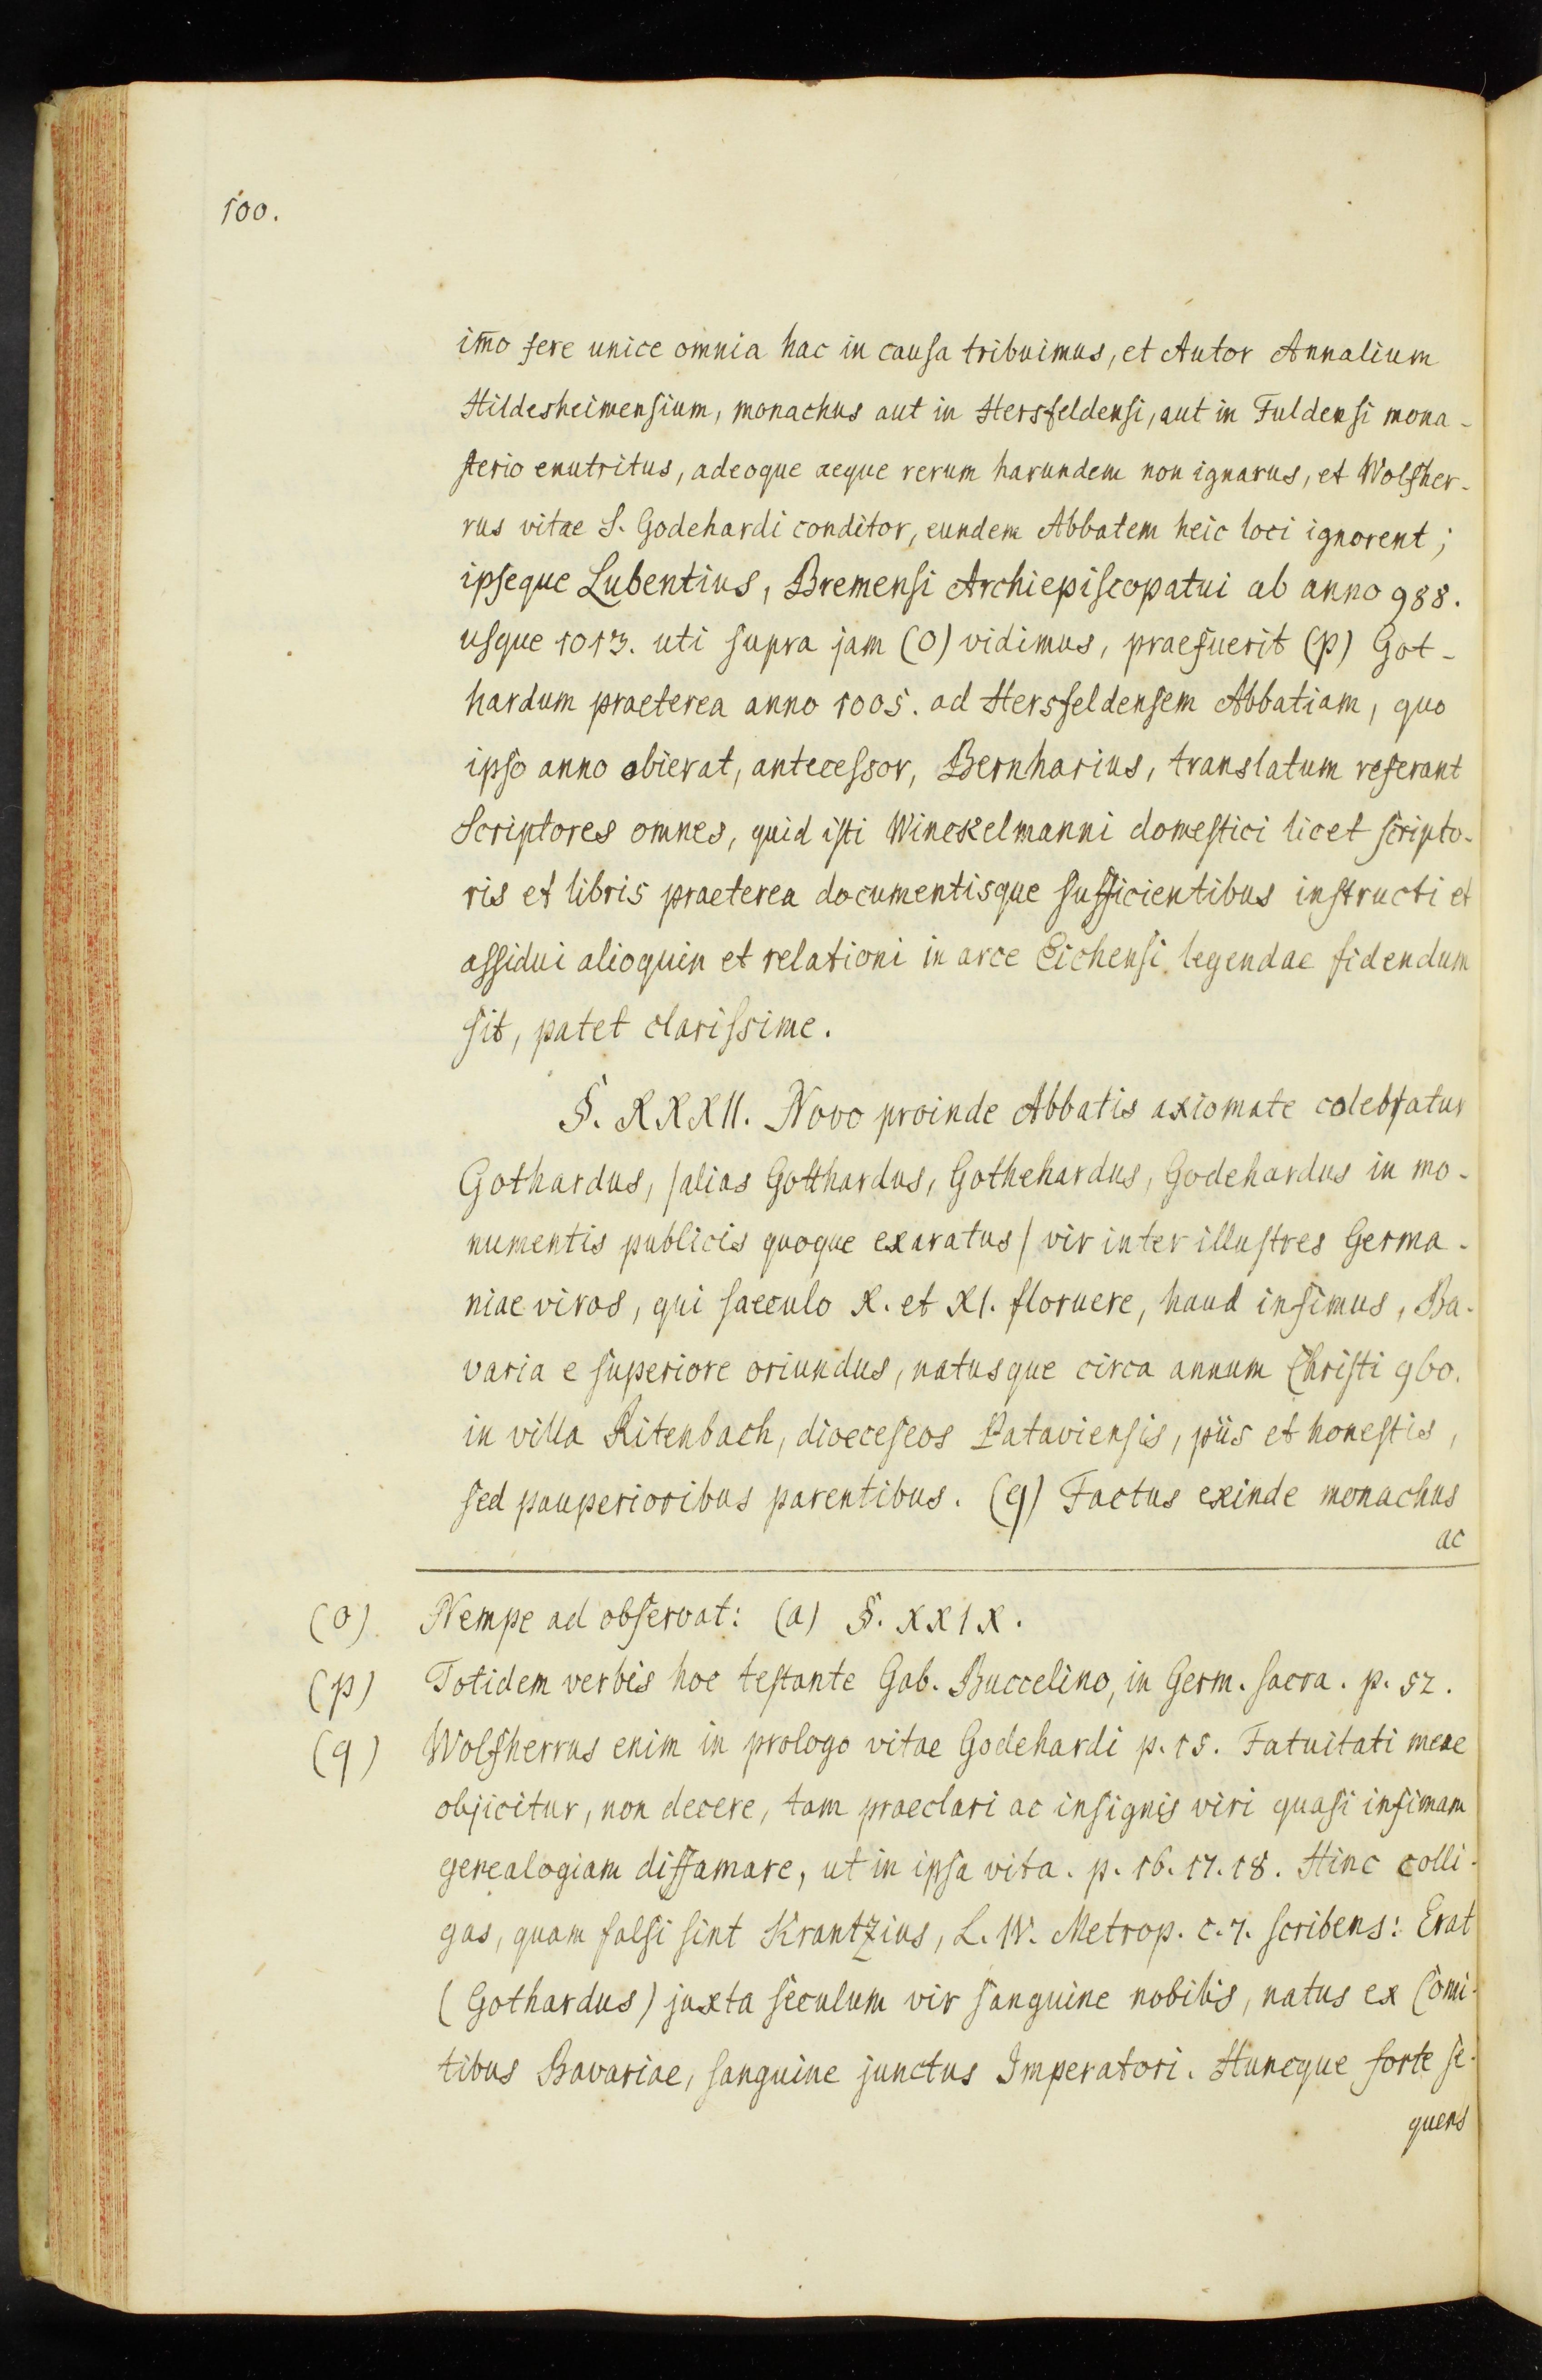 100.
im̄o fere unice omnia hac in causa tribuimus, et Autor Annalium
Hildesheimensium, monachus aut in Hersfeldensi, aut in Fuldensi mona-
sterio enutritus, adeoque aeque rerum harundem non ignarus, et Wolfher-
rus vitae S. Godehardi conditor, eundem Abbatem heic loci ignorent;
ipseque Lubentius, Bremensi Archiepiscopatui ab anno 988.
usque 1013. uti supra jam (o) vidimus, praefuerit (p) Got-
hardum praeterea anno 1005. ad Hersfeldensem Abbatiam, quo
ipso anno abierat, antecessor, Bernharius, translatum referant
Scriptores omnes, quid isti Winckelmanni domestici licet scripto-
ris et libris praeterea documentisque sufficientibus instructi et
assidui alioquin et relationi in arce Eichensi legendae fidendum
sit, patet clarissime.
§. XXXII. Novo proinde Abbatis axiomate celebratur
Gothardus, /alias Gotthardus, Gothehardus, Godehardus in mo-
numentis publicis quoque exaratus/ vir inter illustres Germa-
niae viros, qui saeculo X. et XI. floruere, haud infimus, Ba-
varia e superiore oriundus, natusque circa annum Christi 960.
in villa Ritenbach, dioeceseos Pataviensis, piis et honestis,
sed pauperioribus parentibus. (q) Factus exinde monachus
ac
(o) Nempe ad observat: (a) §. XXIX.
(p) Totidem verbis hoc testante Gab. Buccelino, in Germ. sacra. p. 52.
(q) Wolfherrus enim in prologo vitae Godehardi p. 15. Fatuitati meae
objicitur, non decere, tam praeclari ac insignis viri quasi infimam
genealogiam diffamare, ut in ipsa vita. p. 16. 17. 18. Hinc colli-
gas, quam falsi sint Krantzius, L. IV. Metrop. c. 7. scribens: Erat
(Gothardus) juxta seculum vir sanguine nobilis, natus ex Comi-
tibus Bavariae, sanguine junctus Imperatori. Huncque forte se-
quens